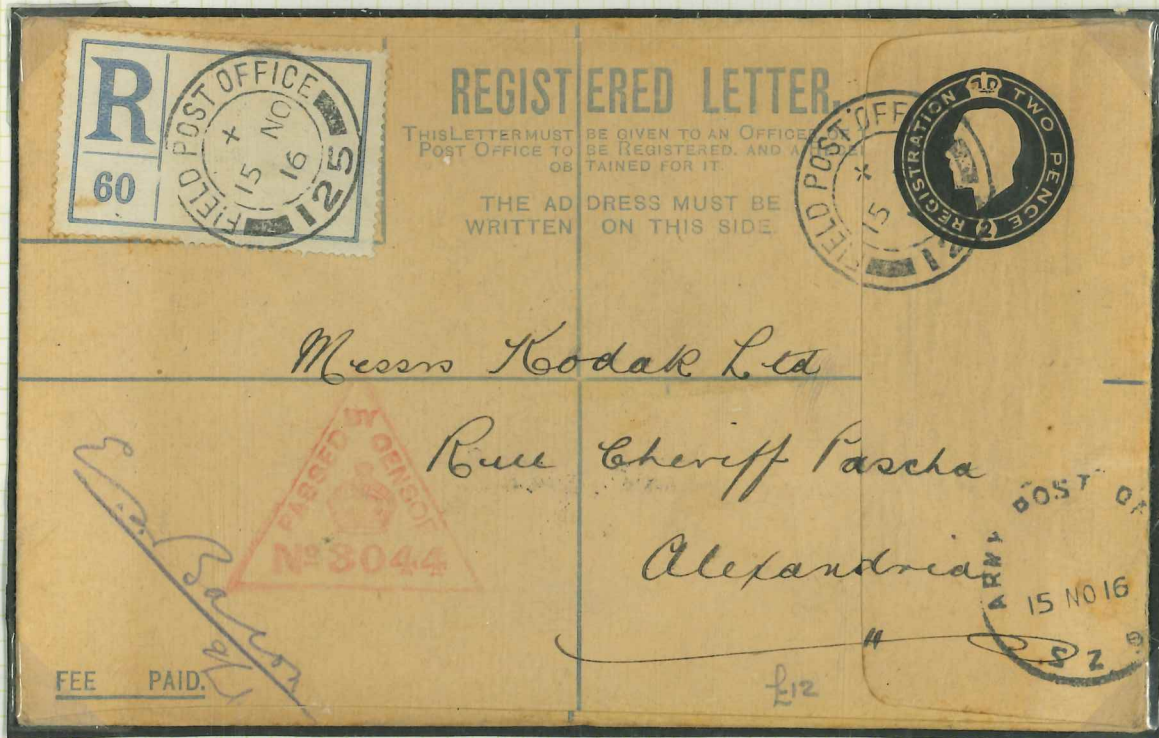 R
60
FIELD POST OFFICE
125
X
15 NO
16
REGISTERED LETTER.
THIS LETTER MUST BE GIVEN TO AN OFFICER OF
POST OFFICE TO BE REGISTERED, AND A
OBTAINED FOR IT.
THE ADDRESS MUST BE
WRITTEN ON THIS SIDE.
FIELD POST OFF
X
15
12
REGISTRATION TWO PENCE (2)
Messrs Kodak Ltd
Rue Cheriff Pascha
Alexandria
PASSED BY CENSOR
No 3044
ARMY POST OF
15 NO 16
S Z 9
FEE PAID.
£12